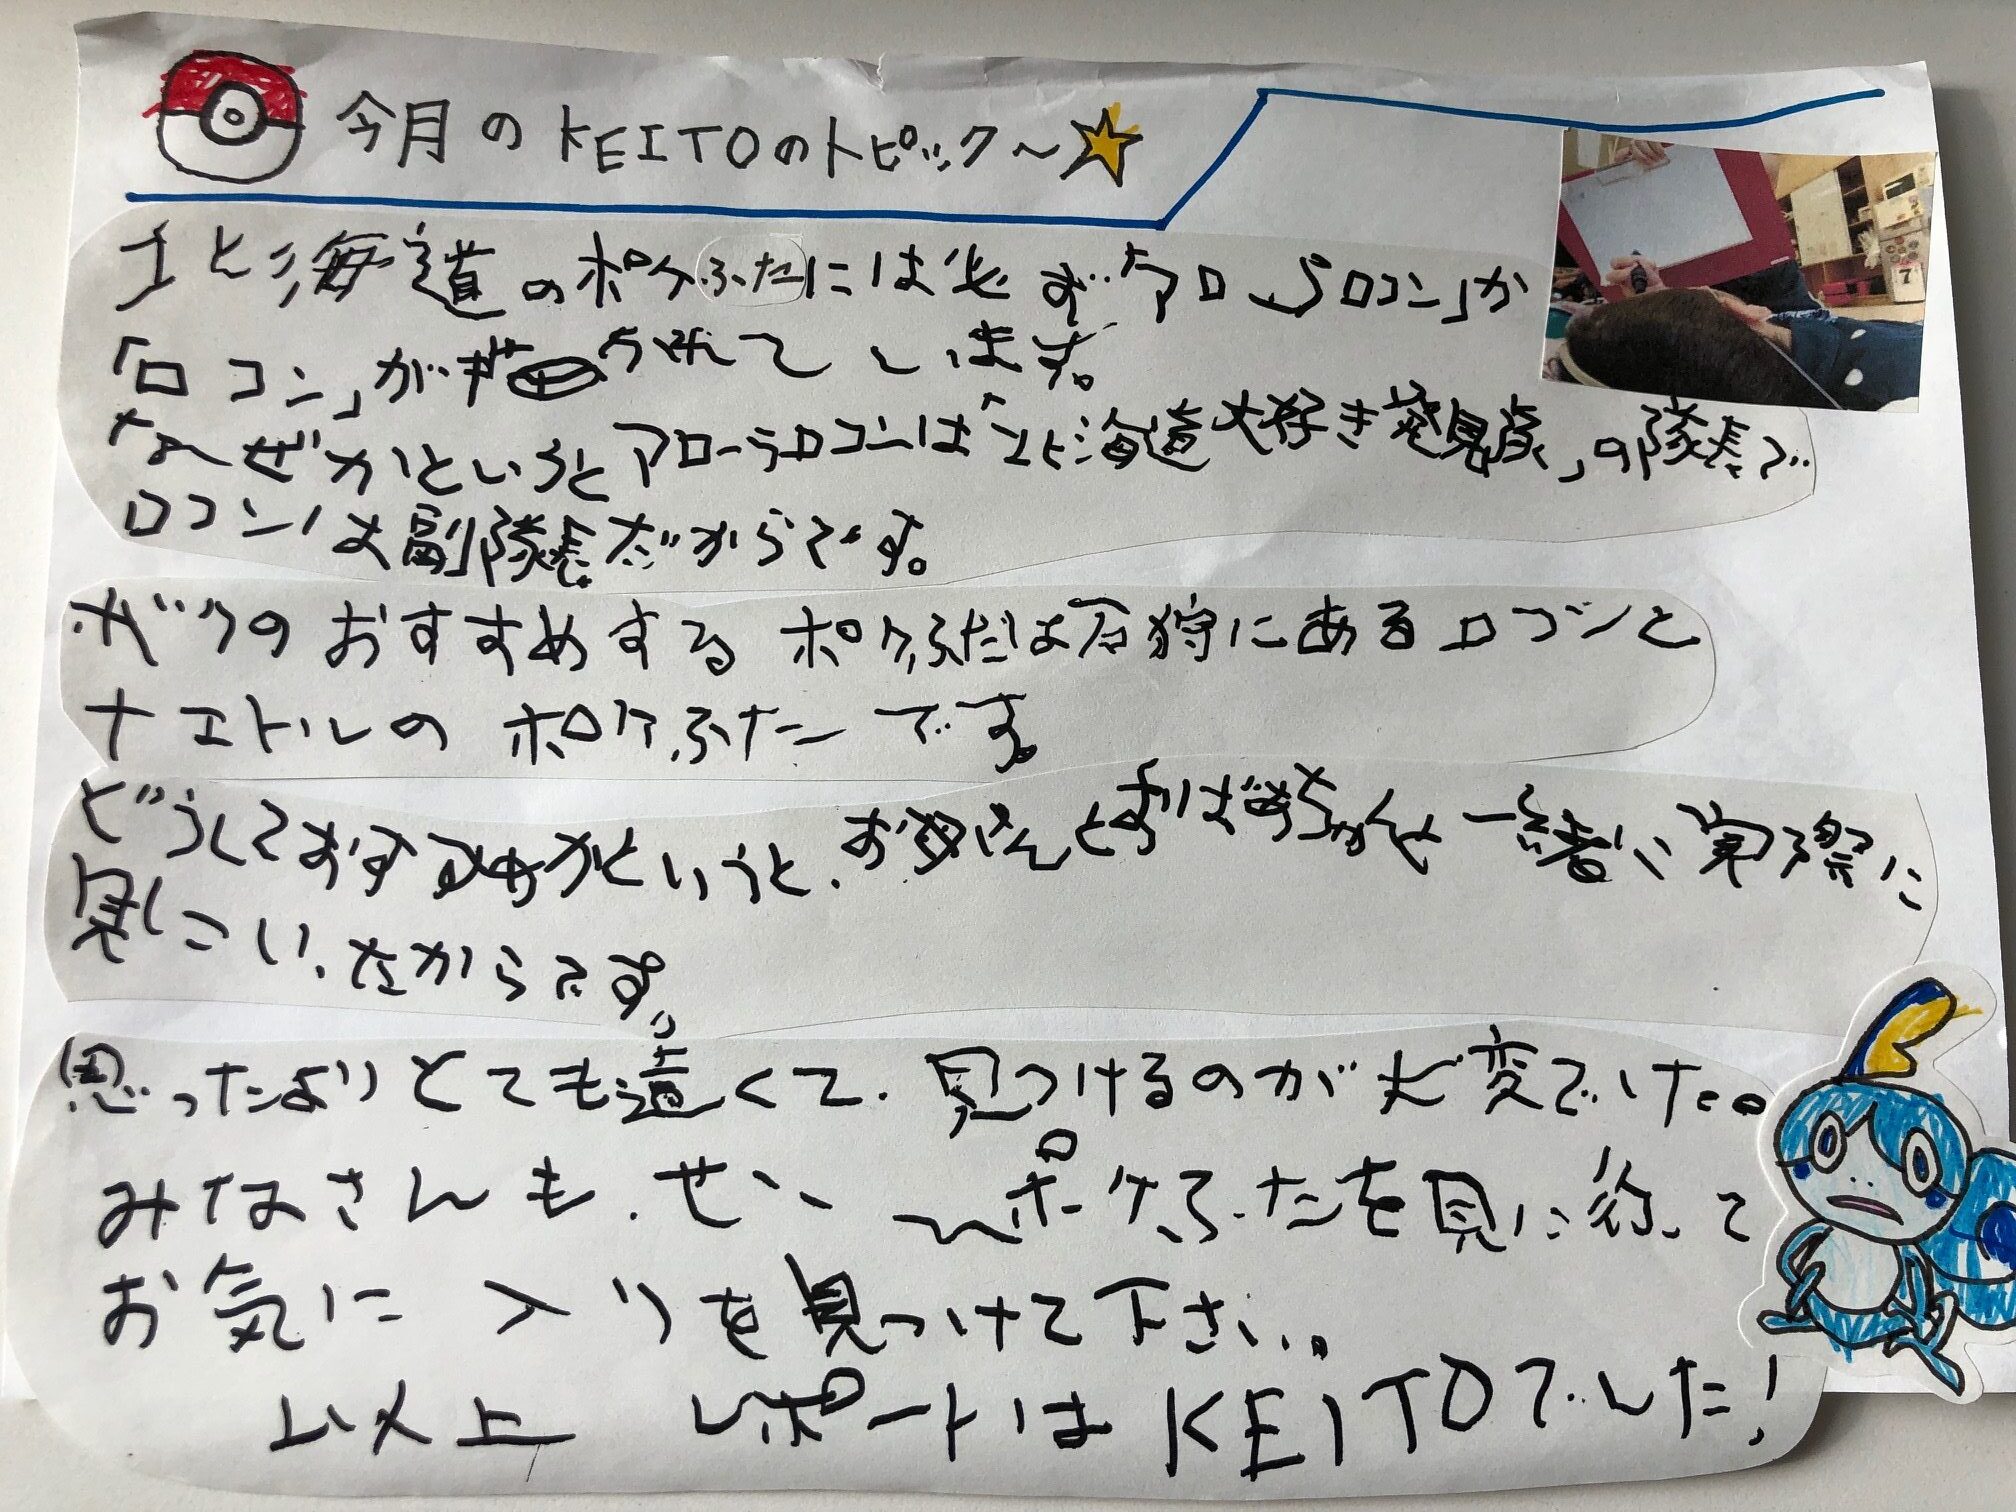 今月のKEITOのトピック～
北海道のポケふたには必ず「アローラロコン」か
「ロコン」が描かれています。
なぜかというとアローラロコンは「北海道大好き発見隊」の隊長で
ロコンは副隊長だからです。
ボクのおすすめするポケふたは石狩にあるロコンと
ナエトルのポケふたです。
どうしておすすめかというと、お母さんとおばあちゃんと一緒に実際に
見にいったからです。
思ったよりとても遠くて、見つけるのが大変でした。
みなさんも、ぜひ ポケふたを見に行って
お気に入りを見つけて下さい。
以上 レポートはKEITOでした!
7